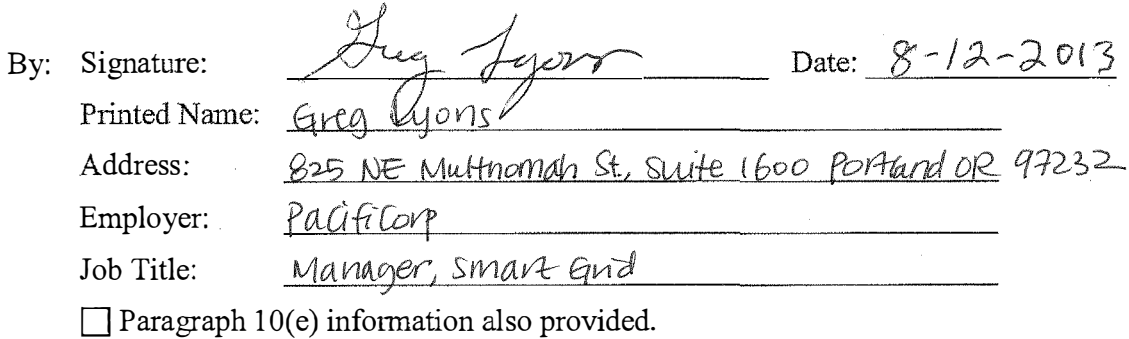 By: Signature: Greg Lyons Date: 8-12-2013
Printed Name: Greg Lyons
Address: 825 NE Multnomah St., Suite 1600 Portland OR 97232
Employer: PacifiCorp
Job Title: Manager, Smart Grid
Paragraph 10(e) information also provided.